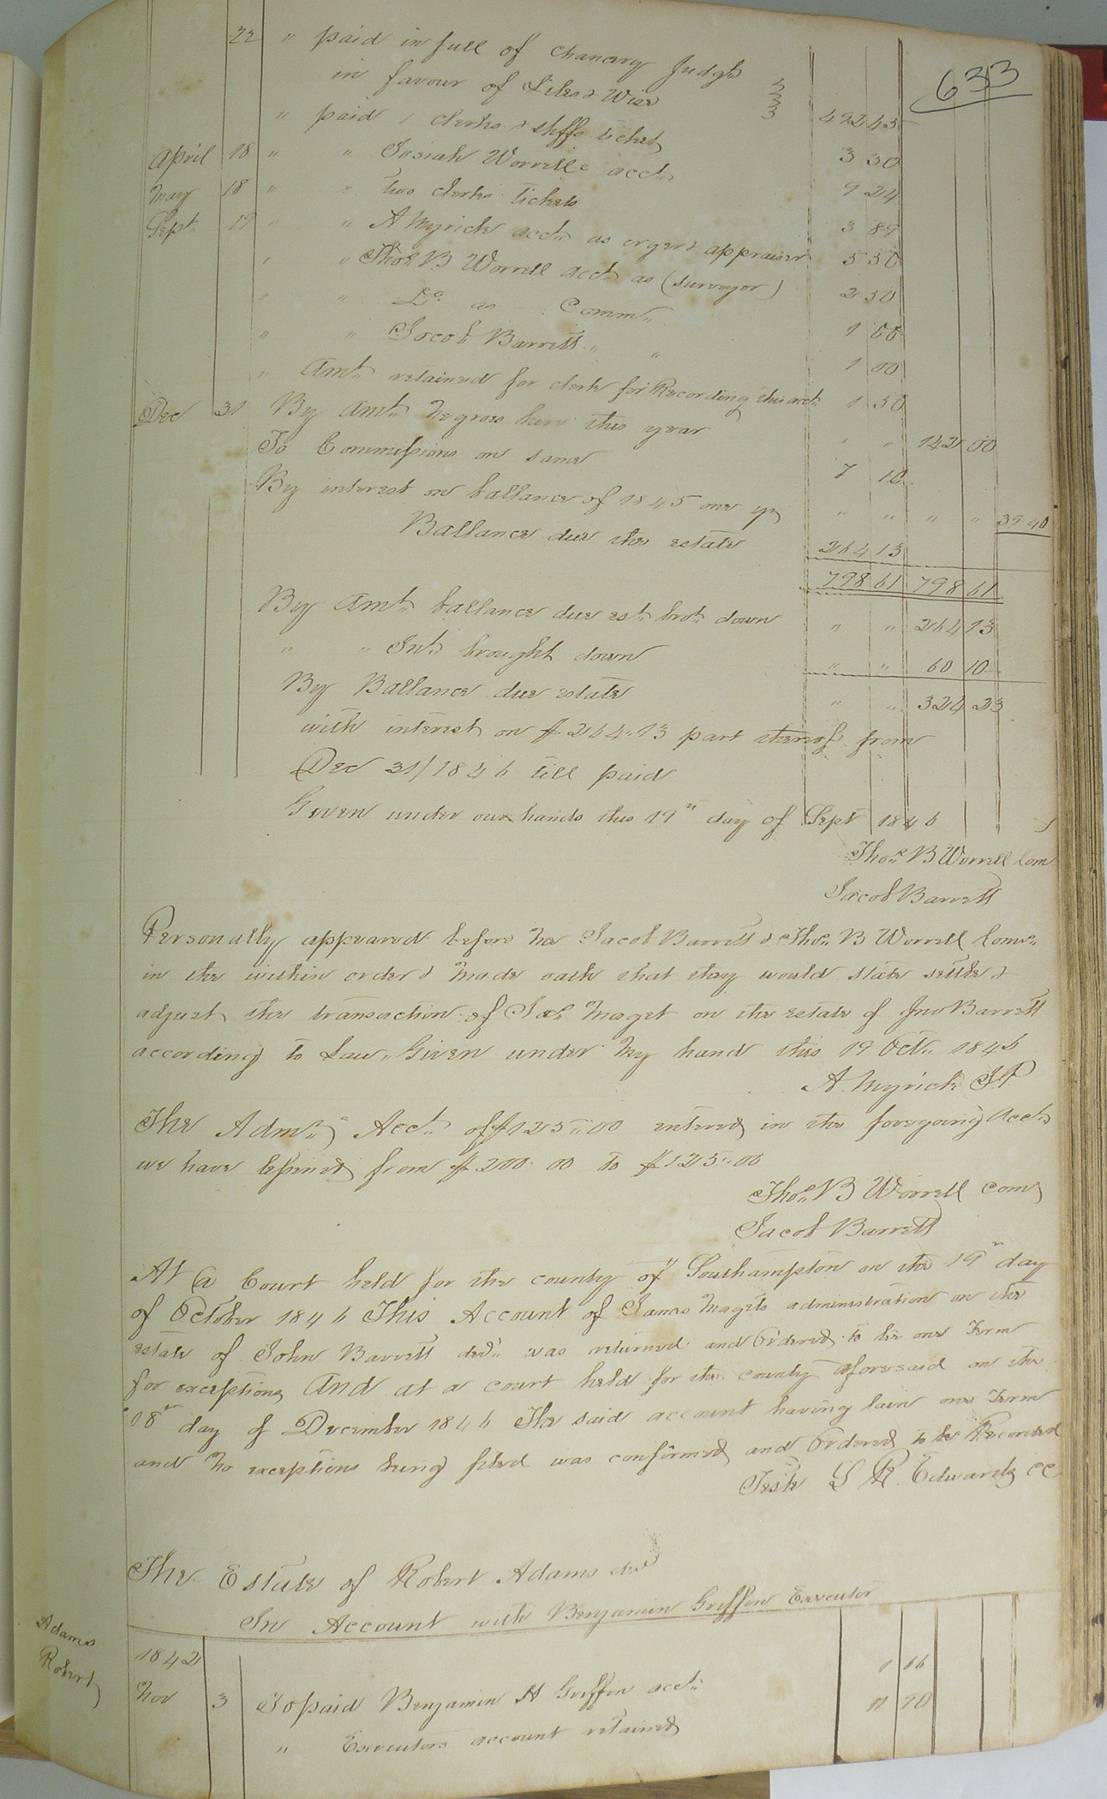 633
22 " paid in full of Chancery Judgt
in favour of Wier 422 45
" paid clerks & shffs ticket 3 30
April 18 " " Josiah Worrells acct 9 24
May 18 " " two clerks tickets 3 89
Sept 19 " " A Myrick acct as cryer & appraiser 5 50
" " Thos B Worrell acct as (surveyor) 2 50
" " Do as Comm 1 00
" " Jacob Barrett " " 1 00
" Amt retained for clerk for Recording this acct 1 50
Dec 31 By Amt Negroes hire this year " " 142 00
To Commissions on same 7 10
By interest on ballance of 1845 one yr " " " " 39 40
Ballance due the estate 264 13
798 61 798 61
By Amt ballance due est brot down " " 264 13
" " Int brought down " " 60 10
By Ballance due estate " " 324 23
with interest on $264.13 part thereof from
Dec 31/1846 till paid
Given under our hands this 19th day of Sept 1846
Thos B Worrell Com
Jacob Barrett
Personally appeared before me Jacob Barrett & Thos B Worrell Coms
in the within order & made oath that they would state settle &
adjust the transaction of Jas Maget on the estate of Jno Barrett
according to Law. Given under my hand this 19 Oct 1846
A. Myrick JP
The Adms Acct of $125.00 entered in the foregoing Acct
we have from $200.00 to $125.00
Thos B Worrell Com
Jacob Barrett
At a Court held for the county of Southampton on the 19th day
of October 1846 This Account of James Magets administration on the
estate of John Barrett decd was returned and Ordered to lie one Term
for exceptions And at a court held for the county aforesaid on the
day of December 1846 The said account having lain one Term
and no exceptions being filed was confirmed and Ordered to be Recorded
Teste L R. Edwards CC
The Estate of Robert Adams decd
In Account with Benjamin Griffin Executor
Adams
Robert
1842
Nov 3 To paid Benjamin A Griffin acct 1 16
" Executors account retained 11 70